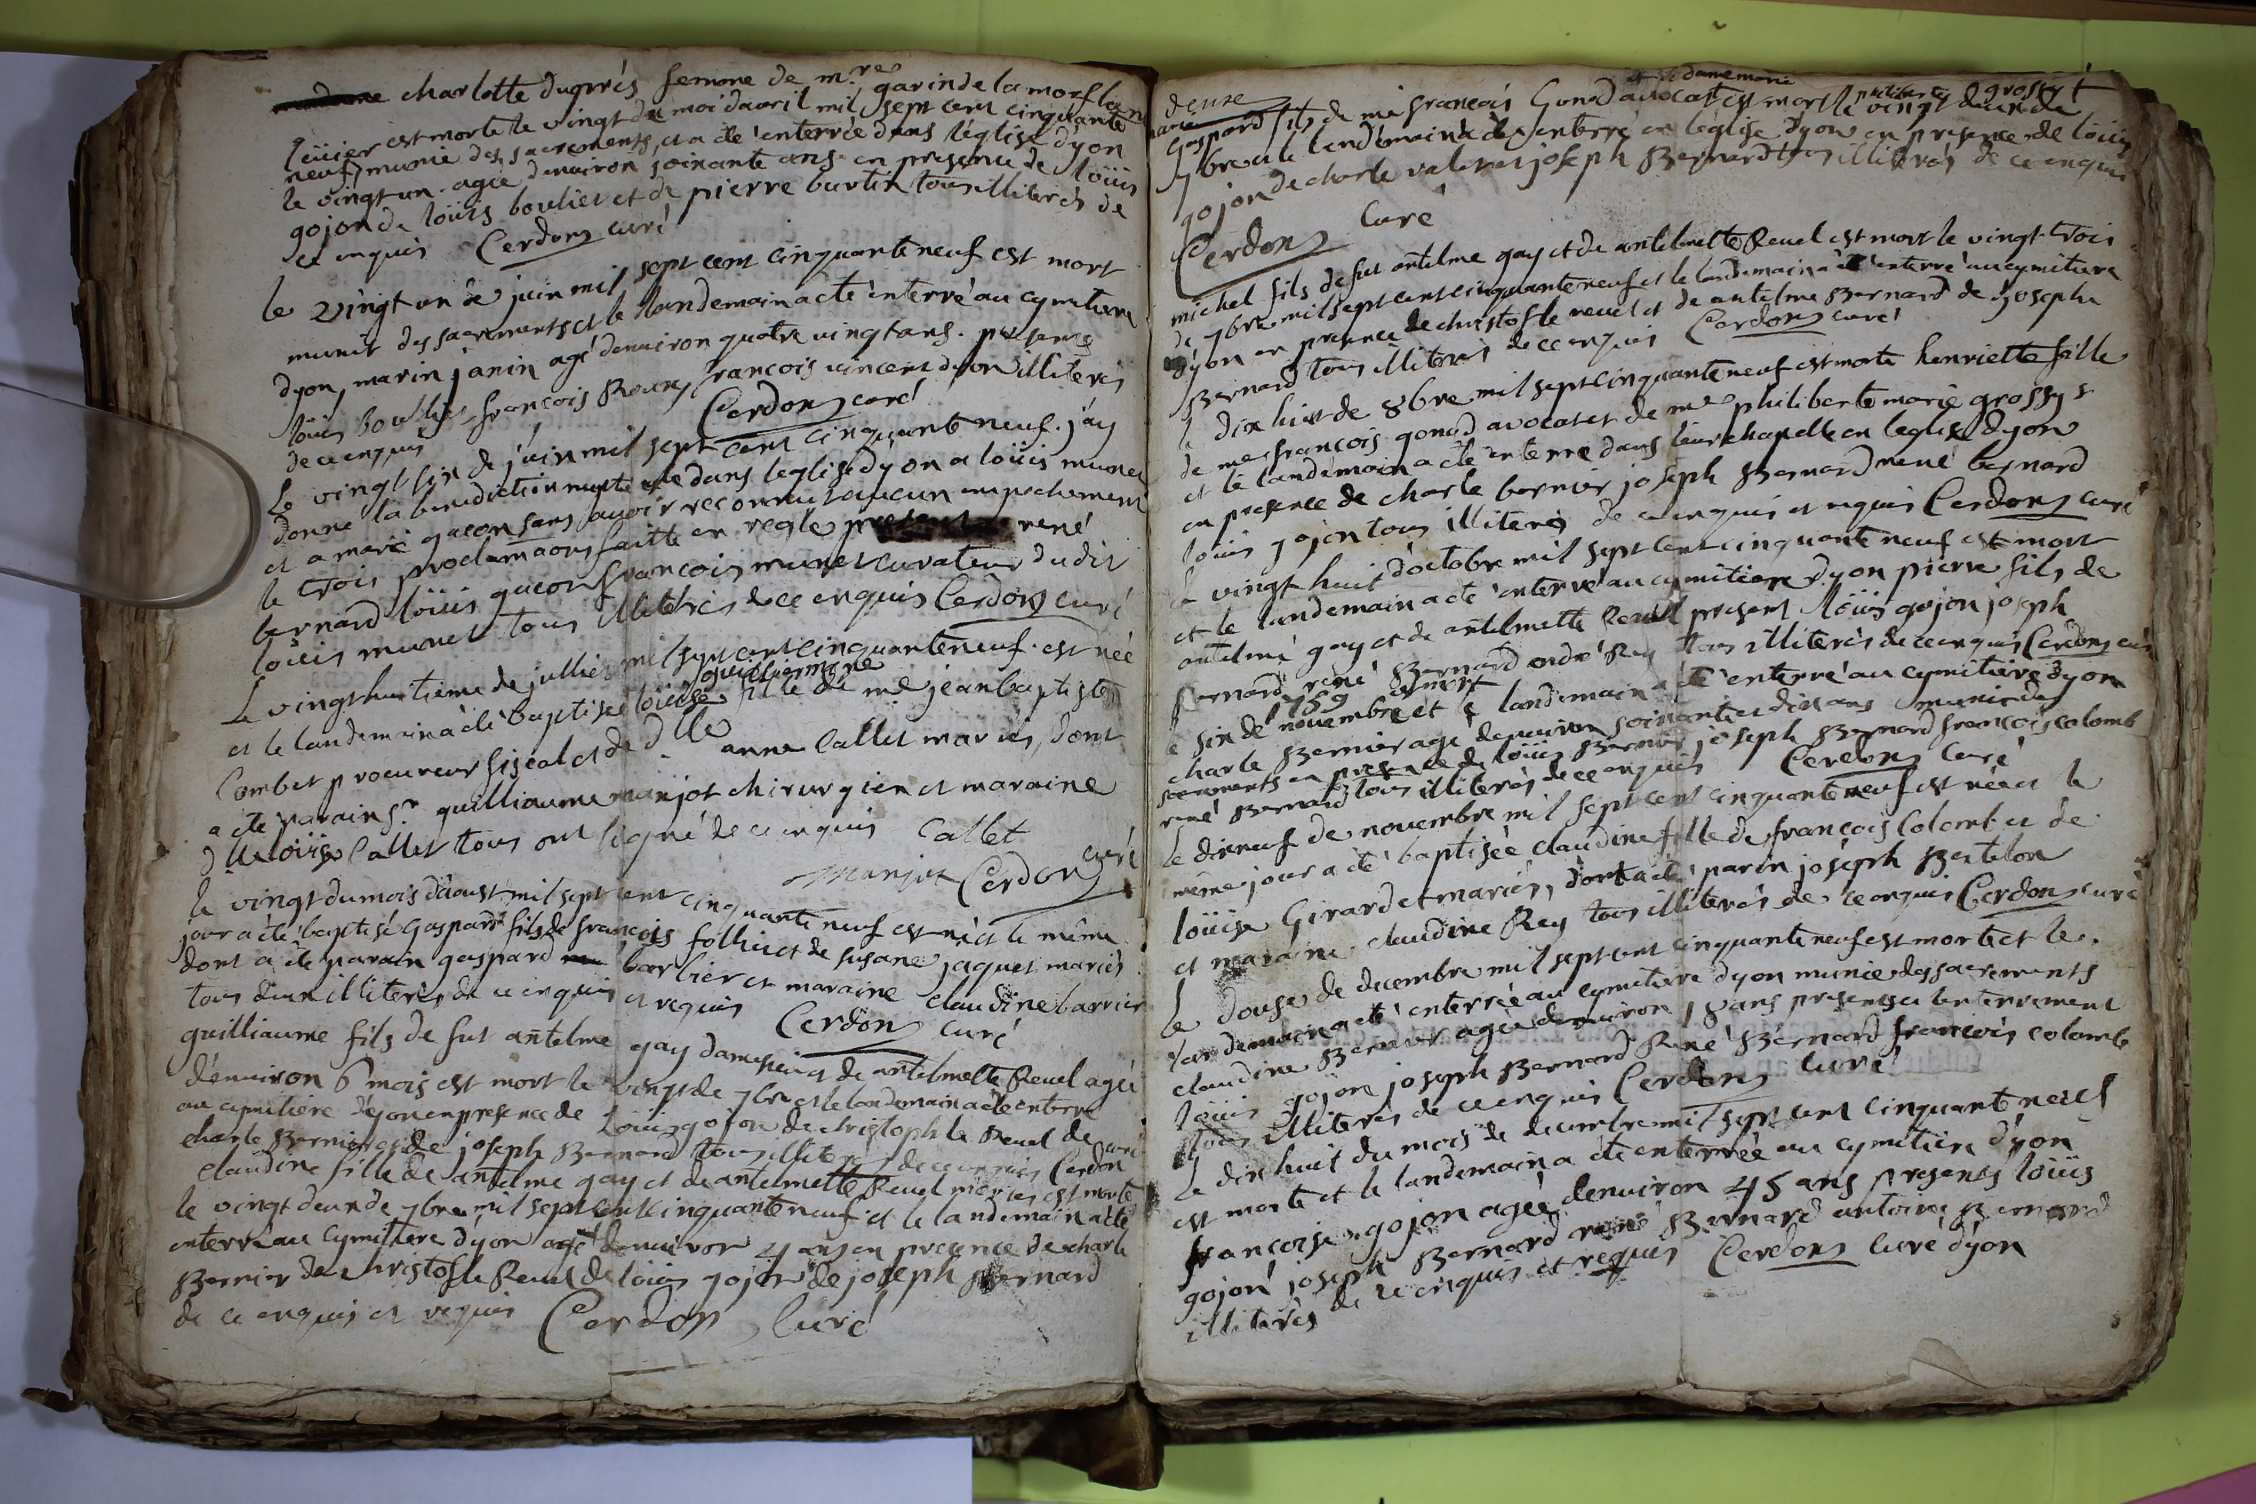 charlotte duprés femme de m.re garin de la morflan
est morte le vingt du moi davril mil sept cent cinquante
neuf munie des sacrements, et a été enterrée dans léglise dyon
le vingt un. agée denviron soixante ans en presence de loüis
gojon de loüis boulier et de pierre burtin tous illiterés de
ce enquis Cerdon curé
le vingt un de juin mil sept cent cinquante neuf est mort
munit des sacrements et le landemain a été enterré au cymitiere
dyon, marin janin agé denviron quatre vingt ans. presents
loüis boulier françois Roux, francois vincent dyon illiterés
de ce enquis Cerdon curé
Le vingt six de juin mil sept cent cinquante neuf. j'ay
donné la benediction nuptiale dans leglise dyon a loüis munet
et a marie gacon sans avoir reconnu aucun empechement
le trois proclamaons faitte en regle rené
bernard loüis gacon francois munet curateur dudit
loüis munet tous illiterés de ce enquis Cerdon curé
Le vingt huitieme de jullier mil sept cent cinquante neuf. est née
et le landemain a été baptisée loüise guilliermine fille de me jean baptiste
Combet procureur fiscal et de dlle anne Callet mariés, dont
a été parain sr. guilliaume manjot chirurgien et maraine
dlle loüise Callet tous ont signé de ce enquis Callet
Manjot Cerdon curé
le vingt du mois daoust mil sept cent cinquante neuf est né et le même
jour a été baptisé Gaspard fils de françois follict et de susane jaquet mariés
dont a été parain gaspard barbier et maraine claudine barrier
tous deux illiterés de ce enquis et requis Cerdon curé
guilliaume fils de fut antelme gay et de antelmette Revel agé
denviron 6 mois est mort le vingt de 7bre et le landemain a été enterré
au cymitiere dyon en presence de Loüis gojon de christophle Revel de
charle Bernier et de joseph Bernard tous illiterés de ce enquis Cerdon curé
claudine fille de antelme gay et de antelmette Revel mariés est morte
le vingt deux de 7bre mil sept cent cinquante neuf et le landemain a été
enterré au Cymitiere dyon agé denviron 4 ans en presence de charle
Bernier de christofle Revel de loüis gojon de joseph Bernard
de ce enquis et requis Cerdon Curé
marie
Gaspard fils de me françois Gonod avocat et de dame marie philiberte grossy est mort le vingt deux de
7bre et le landemain a été enterré en léglise dyon en presence de loüis
gojon de charle valier et joseph Bernard tous illiterés de ce enquis
Cerdon Curé
michel fils de fut antelme gay et de antelmette Revel est mort le vingt trois
de 7bre mil sept cent cinquante neuf et le landemain a été enterré au cymitiere
dyon en presence de christofle revel et de antelme Bernard de joseph
Bernard tous illiterés de ce enquis Cerdon curé
le dix huit de 8bre mil sept cinquante neuf est morte henriette fille
de me françois gonod avocat et de me philiberte marie grossy
et le landemain a été enterré dans leur chapelle en leglise dyon
en presence de charle bernier joseph Bernard rené bernard
loüis gojon tous illiterés de ce enquis et requis Cerdon curé
Le vingt huit doctobre mil sept cent cinquante neuf est mort
et le landemain a été enterré au cymitiere dyon pierre fils de
antelme gay et de antelmette Revel present loüis gojon joseph
Bernard rené Bernard andré Rey tous illiterés de ce enquis Cerdon curé
le six de novembre 1759 est mort et le landemain a été enterré au cymitiere dyon
charle Bernier agé denviron soixante et dix ans munie des
sacrements en presence de loüis Bernier joseph Bernard françois colomb
rené Bernard tous illiterés de ce enquis Cerdon curé
le dix neuf de novembre mil sept cent cinquante neuf est née et le
même jour a été baptisée claudine fille de françois Colomb et de
loüise Girardet mariés, dont a été parin joseph Bertelon
et maraine claudine Rey tous illiterés de ce enquis Cerdon curé
le douse de decembre mil sept cent cinquante neuf est morte et le
landemain a été enterrée au cymitiere dyon munie des sacrements
claudine Bernier agée denviron 18 ans presents a lenterrement
loüis gojon joseph Bernard René Bernard françois colomb
tous illiterés de ce enquis Cerdon Curé
le dix huit du mois de decembre mil sept cent cinquante neuf
est morte et le landemain a été enterrée au cymitiere dyon
françoise gojon agée denviron 45 ans presents loüis
gojon joseph Bernard rené Bernard antoine Bernard
illiterés de ce enquis et requis Cerdon Curé dyon